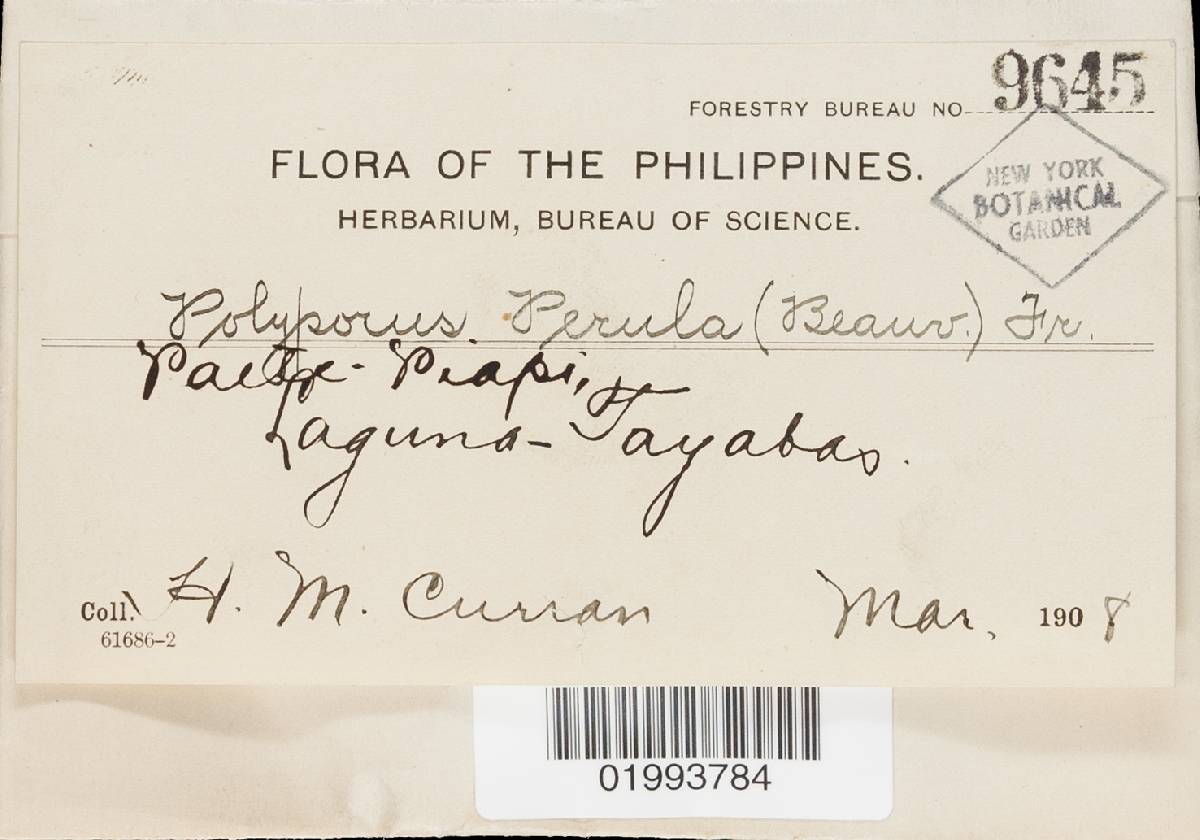 FORESTRY BUREAU NO. 9645
FLORA OF THE PHILIPPINES.
HERBARIUM, BUREAU OF SCIENCE.
NEW YORK
BOTANICAL
GARDEN
Polyporus Perula (Beauv.) Fr.
Paete-Piapi,
Laguna-Tayabas.
Coll. H. M. Curran Mar. 1908
61686-2
01993784